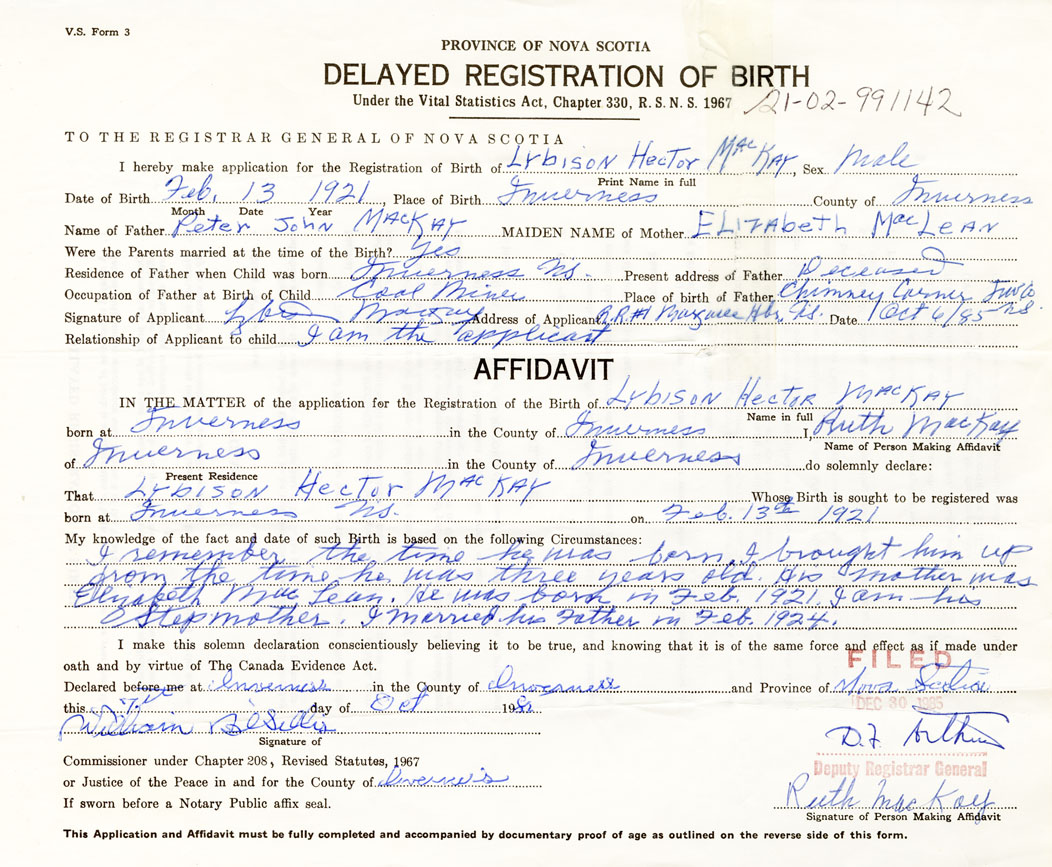 V.S. Form 3
PROVINCE OF NOVA SCOTIA
DELAYED REGISTRATION OF BIRTH
Under the Vital Statistics Act, Chapter 330, R.S.N.S. 1967 21-02-991142
TO THE REGISTRAR GENERAL OF NOVA SCOTIA
I hereby make application for the Registration of Birth of Lybison Hector MacKay, Sex Male
Print Name in full
Date of Birth Feb. 13 1921, Place of Birth Inverness County of Inverness
Month Date Year
Name of Father Peter John MacKay MAIDEN NAME of Mother Elizabeth MacLean
Were the Parents married at the time of the Birth? Yes
Residence of Father when Child was born Inverness N.S. Present address of Father Deceased
Occupation of Father at Birth of Child Coal Miner Place of birth of Father Chimney Corner Inv Co N.S.
Signature of Applicant MacKay Address of Applicant R.R#1 Margaree Hbr. N.S. Date Oct 6/85
Relationship of Applicant to child I am the applicant
AFFIDAVIT
IN THE MATTER of the application for the Registration of the Birth of Lybison Hector MacKay
Name in full
born at Inverness in the County of Inverness I, Ruth MacKay
Name of Person Making Affidavit
of Inverness in the County of Inverness do solemnly declare:
Present Residence
That Lybison Hector MacKay Whose Birth is sought to be registered was
born at Inverness N.S. on Feb. 13th 1921
My knowledge of the fact and date of such Birth is based on the following Circumstances:
I remember the time he was born, I brought him up
from the time he was three years old. His mother was
Elizabeth MacLean. He was born in Feb. 1921. I am his
Stepmother. I married his Father in Feb. 1924.
I make this solemn declaration conscientiously believing it to be true, and knowing that it is of the same force and effect as if made under
oath and by virtue of The Canada Evidence Act.
FILED
Declared before me at Inverness in the County of Inverness and Province of Nova Scotia
this day of Oct 198
DEC 30 1985
William
Signature of
D.F. Arthur
Commissioner under Chapter 208, Revised Statutes, 1967
Deputy Registrar General
or Justice of the Peace in and for the County of Inverness
Ruth MacKay
If sworn before a Notary Public affix seal.
Signature of Person Making Affidavit
This Application and Affidavit must be fully completed and accompanied by documentary proof of age as outlined on the reverse side of this form.